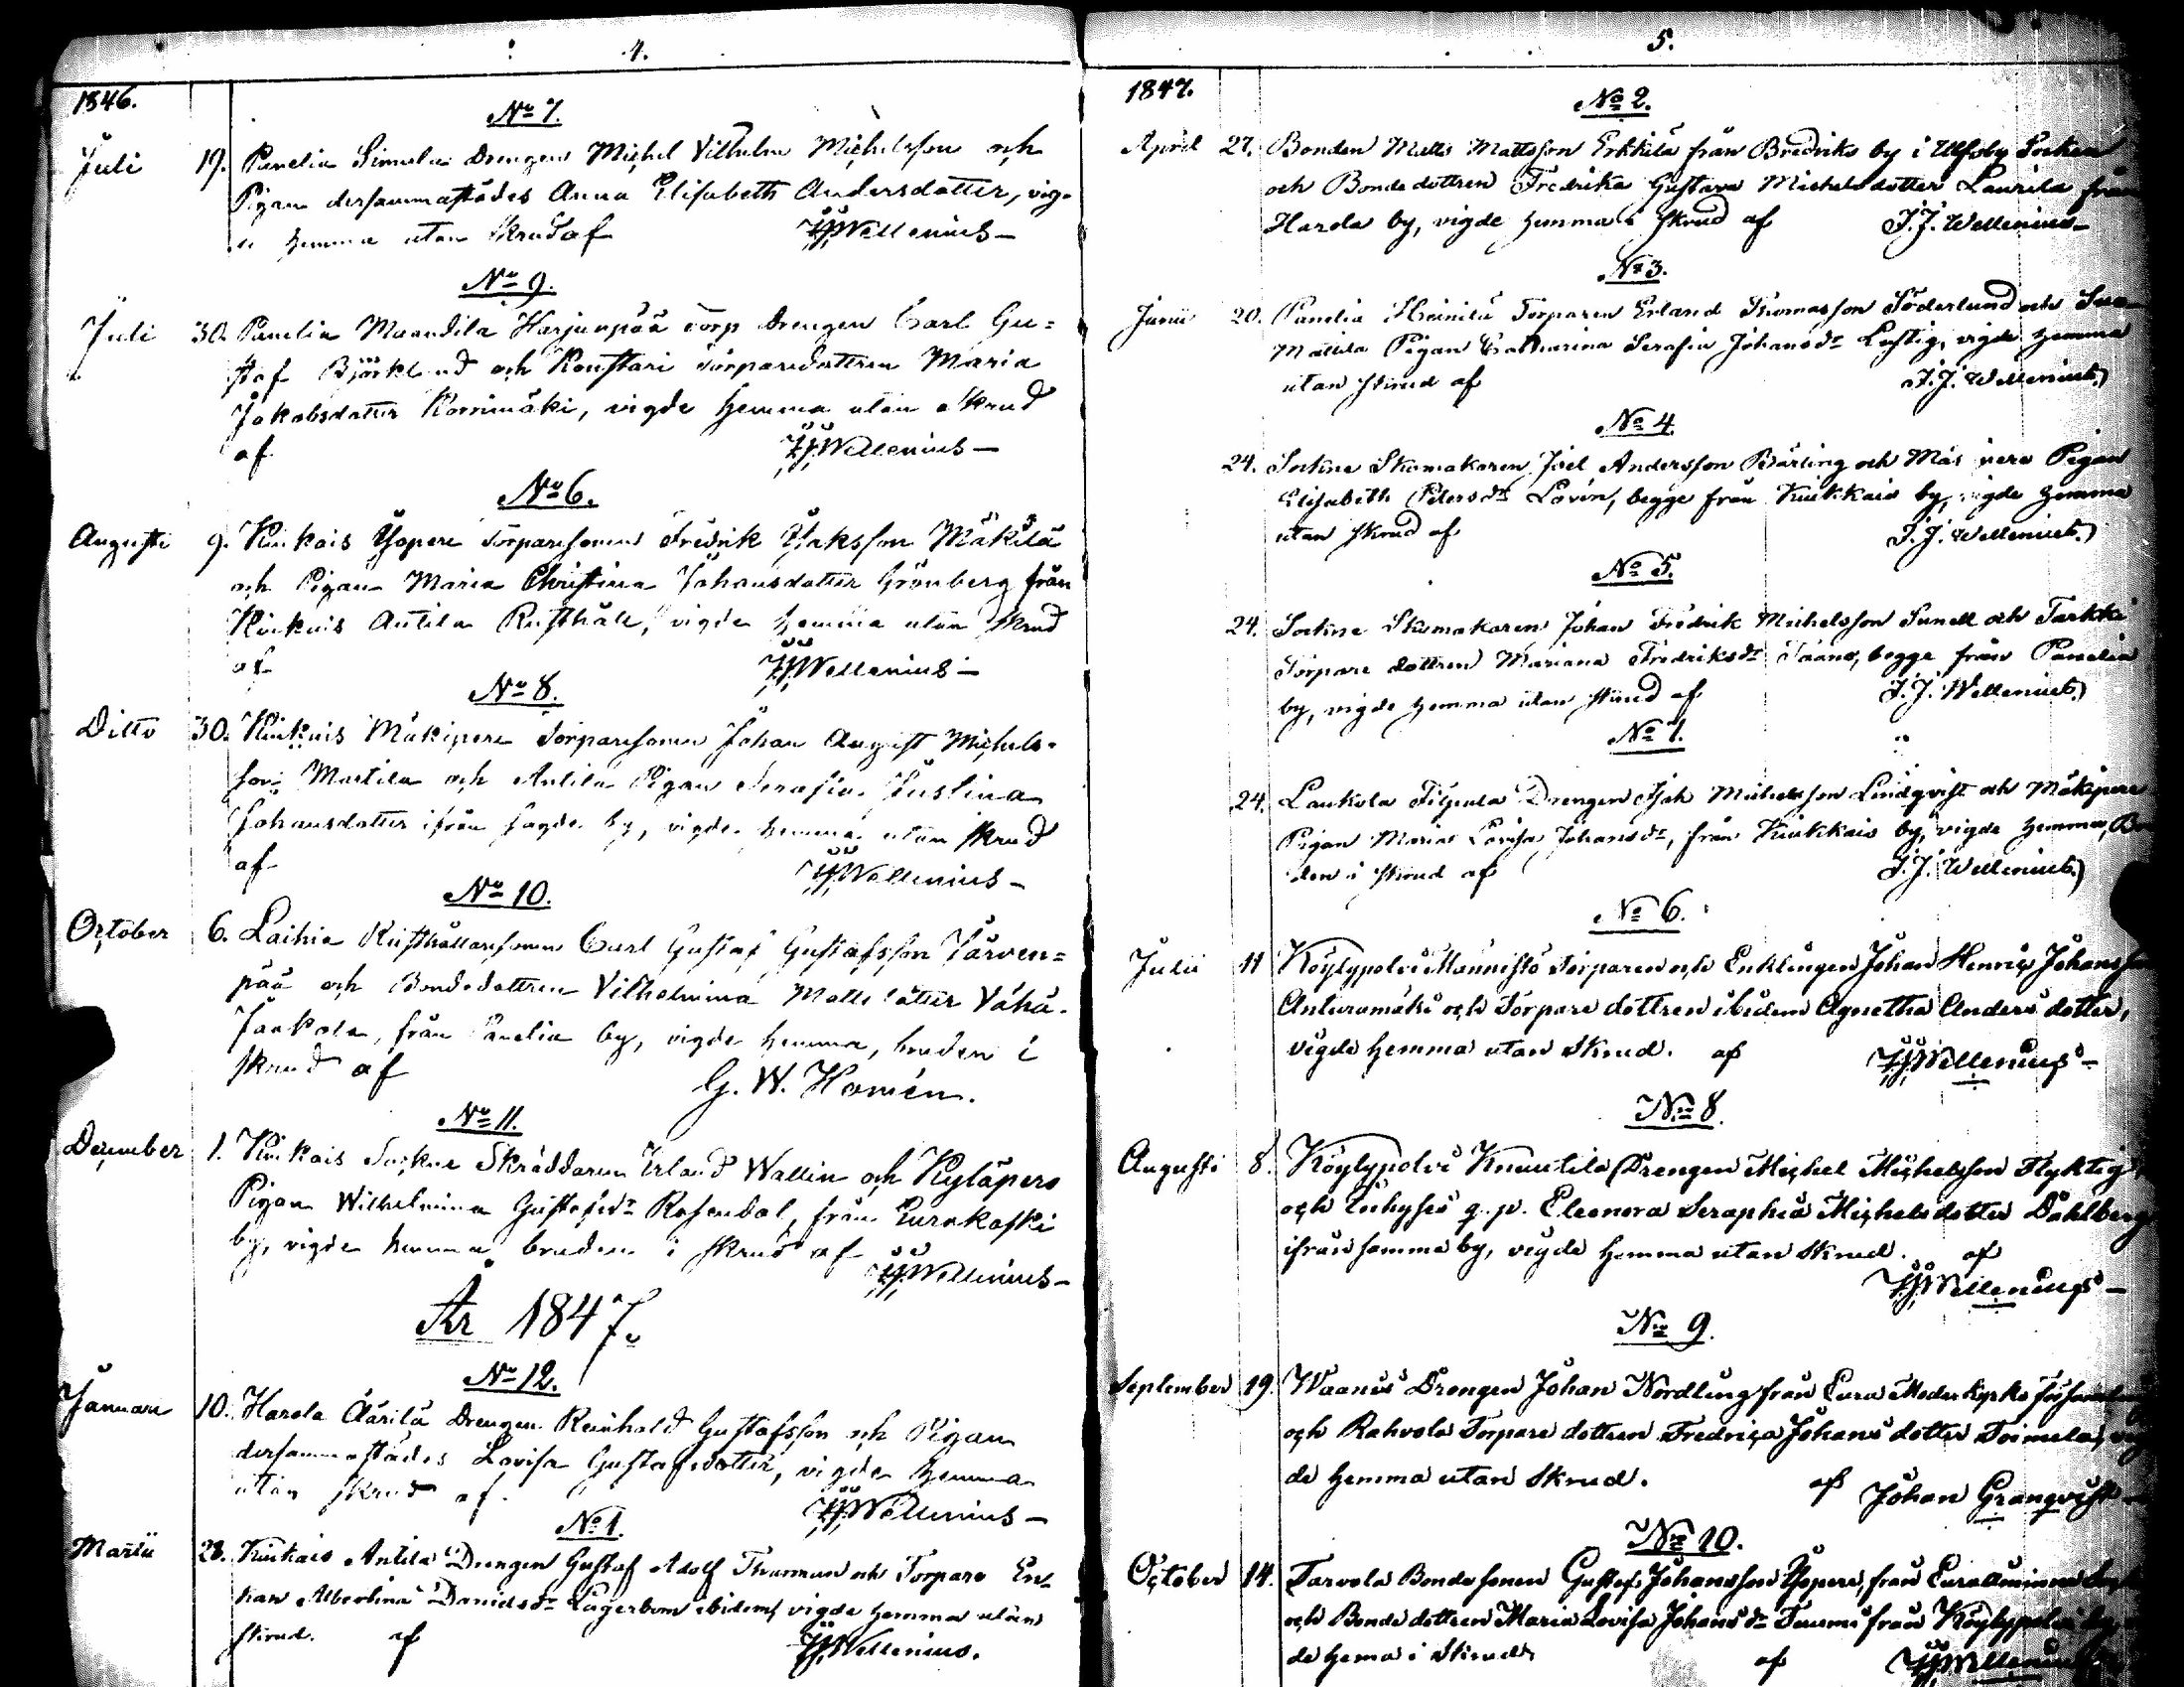 4.
1846.
No 7.
Juli 19. Panelia Simula Drengen Michel Vilhelm Michelsson och
Pigan dersammastädes Anna Elisabeth Andersdotter, vig-
de hemma utan skrud af JJWellenius
No 9.
Juli 30. Panelia Maandila Harjunpää Torp Drengen Carl Gu=
staf Björklund och Koustari Torparedottren Maria
Jakobsdotter Korrimäki, vigde hemma utan skrud
af JJWellenius
No 6.
Augusti 9. Kiukais Yopere Torparesonen Fredrik Isaksson Mäkilä
och Pigan Maria Christina Johansdotter Grönberg från
Kiukais Antila Rusthåll, vigde hemma utan skrud
af JJWellenius
No 8.
Ditto 30. Kiukais Mäkipere Torparesonen Johan August Michels-
son Martila och Antila Pigan Serafia Justina
Johansdotter ifrån sagde by, vigde hemma utan skrud
af JJWellenius
No 10.
October 6. Laihia Rusthållaresonen Carl Gustaf Gustafsson Järven=
pää och Bondedottren Vilhelmina Mattsdotter Vähä-
Jaakola, från Panelia by, vigde hemma, bruden i
skrud af G. W. Homén.
No 11.
December 1. Kiukais Sockne Skräddaren Erland Wallin och Kyläpere
Pigan Wilhelmina Gustafsdr Rosendal, från Eurakoski
by, vigde hemma bruden i skrud af JJWellenius
År 1847.
No 12.
Januari 10. Harola Äärilä Drengen Reinhold Gustafsson och Pigan
dersammastädes Lovisa Gustafsdotter, vigde hemma
utan skrud af JJWellenius
No 1.
Martii 28. Kiukais Antila Drengen Gustaf Adolf Thurman och Torpare En-
kan Albertina Davidsdr Lagerbom ibidem, vigde hemma utan
skrud. af JJWellenius.
5.
1847.
No 2.
April 27. Bonden Matts Mattsson Erkkilä från Bredviks by i Ulfsby Socken
och Bondedottren Fredrika Gustava Michelsdotter Laurila från
Harola by, vigde hemma i skrud af J.J. Wellenius
No 3.
Junii 20. Panelia Heinilä Torparen Erland Thomasson Söderlund och
Mattila Pigan Catharina Serafia Johansdr Lustig, vigde hemma
utan skrud af J.J. Wellenius.
No 4.
24. Sockne Skomakaren Joel Andersson Bärling och Pigan
Elisabeth Petersdr Lovén, begge från Kiukkais by, vigde hemma
utan skrud af J.J. Wellenius.
No 5.
24. Sockne Skomakaren Johan Fredrik Michelsson Sunell och Tarkki
Torpare dottren Mariana Fredriksdr begge från Panelia
by, vigde hemma utan skrud af J.J. Wellenius.
No 7.
24. Laukola Filpula Drengen Isak Michelsson Lindqvist och Mäkipere
Pigan Maria Lovisa Johansdr, från Kiukkais by, vigde hemma, Bru
den i skrud af J.J. Wellenius.
No 6.
Julii 11 Köylypolvi Männistö Torparen och Enklingen Johan Henric Johansson
Anturamäki och Torpare dottren ibidem Agnetha Anders dotter,
vigde hemma utan skrud. af JJWellenius
No 8.
Augusti 8. Köylypolvi Knuutila Drengen Michel Michelsson Flyktig
och q. p. Eleonora Seraphia Michelsdotter Dahlberg
ifrån samma by, vigde hemma utan skrud. af
JJWellenius
No 9.
September 19. Waanis Drengen Johan Nordling från Eura Moder Kyrko församling
och Rahvola Torpare dottren Fredrica Johans dotter Toimela, vig
de hemma utan skrud. af Johan Granqvist
No 10.
October 14. Tarvola Bondesonen Gustaf Johansson Yopere, från Euraåminne
och Bonde dottren Maria Lovisa Johansdr Tuumi från Köylypolvi by,
de hema i skrud af JJWellenius